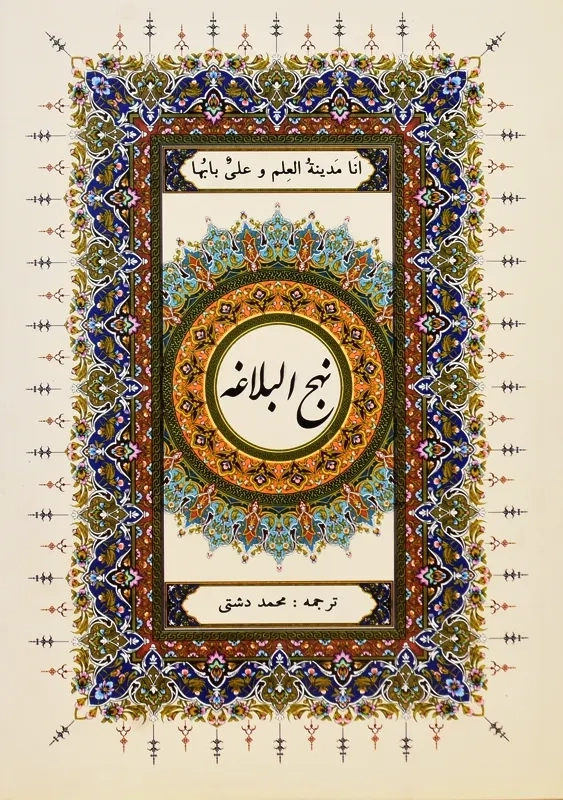 انَا مَدینةُ العِلم و علیٌ بابُها
نهج البلاغه
ترجمه : محمد دشتی